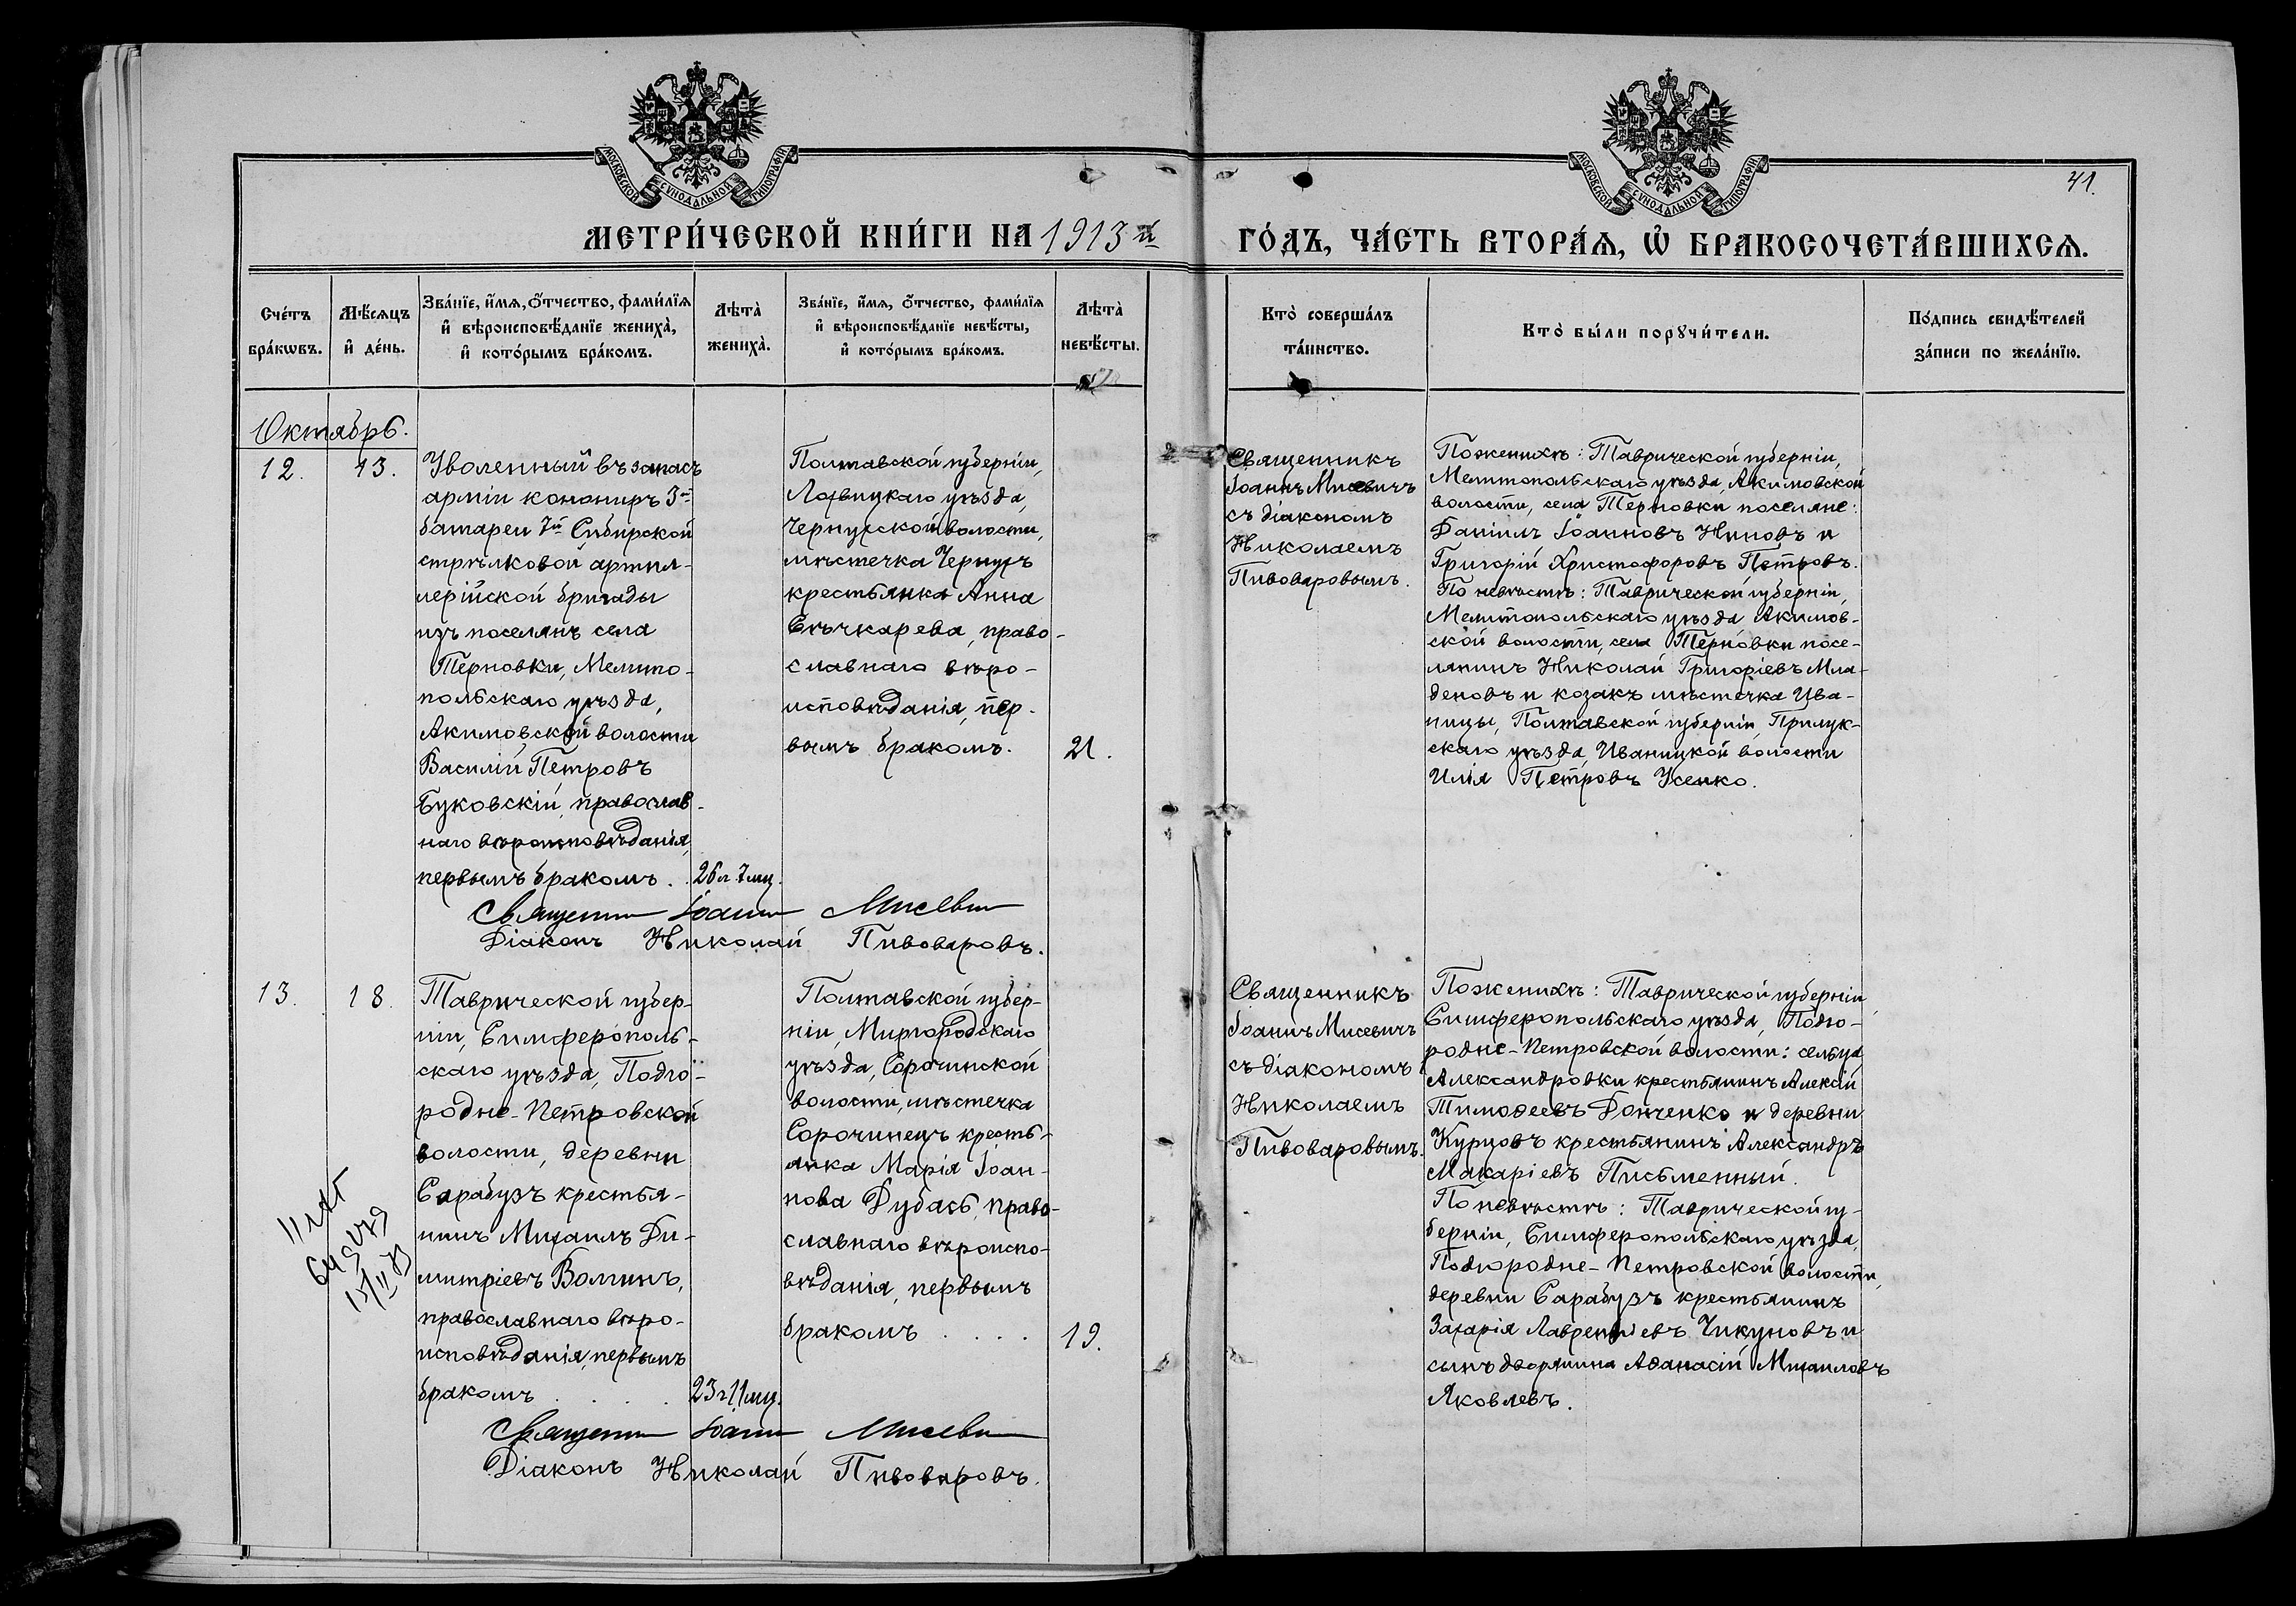 МОСКОВСКОЙ СѴНОДАЛЬНОЙ ТИПОГРАФІИ
МОСКОВСКОЙ СѴНОДАЛЬНОЙ ТИПОГРАФІИ
41.
МЕТРИ́ЧЕСКОЙ КНИ́ГИ НА 1913й
ГО́ДЪ, ЧА́СТЬ ВТОРА́Ѧ, Ѡ҆ БРАКОСОЧЕТА́ВШИХСѦ.
Сче́тъ
бра́кѡвъ.
Мѣ́сѧцъ
и҆ де́нь.
Зва́нїе, и҆́мѧ, ѻ҆́тчество, фами́лїѧ
и҆ вѣроисповѣ́данїе жениха̀,
и҆ кото́рымъ бра́комъ.
Лѣта̀
жениха̀.
Зва́нїе, и҆́мѧ, ѻ҆́тчество, фами́лїѧ
и҆ вѣроисповѣ́данїе невѣ́сты,
и҆ кото́рымъ бра́комъ.
Лѣта̀
невѣ́сты.
Кто̀ соверша́лъ
та́инство.
Кто̀ бы́ли порꙋчи́тели.
По́дпись свидѣ́телей
за́писи по жела́нїю.
Октябрь.
12.
13.
Уволенный въ запасъ
арміи канониръ 3й
батареи 7й Сибирской
стрѣлковой артил-
лерійской бригады
изъ поселянъ села
Терновки, Мелито-
польскаго уѣзда,
Акимовской волости
Василій Петровъ
Буковскій, православ-
наго вѣроисповѣданія,
первымъ бракомъ..
26 л. 7 мц.
Полтавской губерніи,
Лохвицкаго уѣзда,
Чернусской волости,
мѣстечка Чернухъ
крестьянка Анна
Сѣчкарева, право-
славнаго вѣро-
исповѣданія, пер-
вымъ бракомъ.
21.
Священникъ
Іоаннъ Мисевичъ
съ діакономъ
Николаемъ
Пивоваровымъ.
По женихѣ: Таврической губерніи,
Мелитопольскаго уѣзда, Акимовской
волости, села Терновки поселяне:
Даніилъ Іоанновъ Ниновъ и
Григорій Христофоровъ Петровъ.
По невѣстѣ: Таврической губерніи,
Мелитопольскаго уѣзда Акимов-
ской волости, села Терновки посе-
лянинъ Николай Григоріевъ Мла-
деновъ и козакъ мѣстечка Ива-
ницы, Полтавской губерніи, Прилук-
скаго уѣзда, Иваницкой волости
Илія Петровъ Усенко.
Священникъ Іоаннъ Мисевич
Діаконъ Николай Пивоваровъ.
13.
18.
Таврической губер-
ніи, Симферополь-
скаго уѣзда, Подго-
родне-Петровской
волости, деревни
Сарабузъ крестья-
нинъ Михаилъ Ди-
митріевъ Волчинъ,
православнаго вѣро-
исповѣданія, первымъ
бракомъ....
23 г. 11 мц.
Полтавской губер-
ніи, Миргородскаго
уѣзда, Сорочинской
волости, мѣстечка
Сорочинецъ кресть-
янка Марія Іоан-
нова Дубась, право-
славнаго вѣроиспо-
вѣданія, первымъ
бракомъ....
19.
Священникъ
Іоаннъ Мисевичъ
съ діакономъ
Николаемъ
Пивоваровымъ.
По женихѣ: Таврической губерніи,
Симферопольскаго уѣзда, Подго-
родне-Петровской волости: сельца
Александровки крестьянинъ Алексій
Тимоѳеевъ Донченко и деревни
Курцовъ крестьянинъ Александръ
Макаріевъ Письменный.
По невѣстѣ: Таврической гу-
берніи, Симферопольскаго уѣзда,
Подгородне-Петровской волости,
деревни Сарабузъ крестьянинъ
Захарія Лаврентіевъ Чикуновъ и
сынъ дворянина Аѳанасій Михаиловъ
Яковлевъ.
Священникъ Іоаннъ Мисевич
Діаконъ Николай Пивоваровъ.